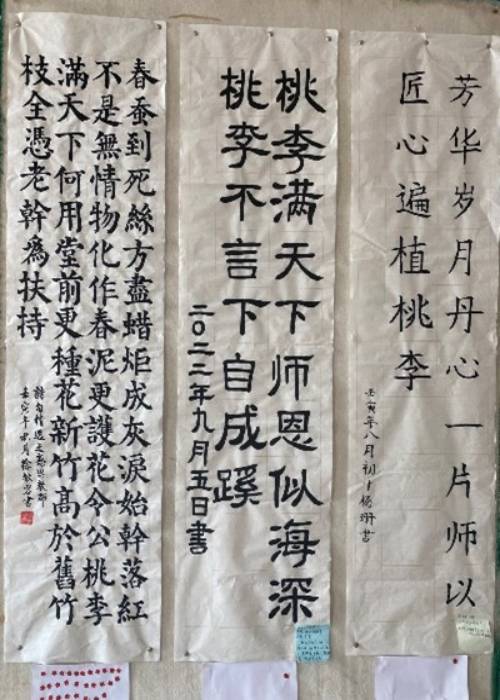 芳华岁月丹心一片师以
匠心遍植桃李
壬寅年八月初十
桃李满天下师恩似海深
桃李不言下自成蹊
二〇二二年九月五日書
春蚕到死絲方盡蜡炬成灰淚始幹落紅
不是無情物化作春泥更護花令公桃李
滿天下何用堂前更種花新竹高於舊竹
枝全憑老幹爲扶持